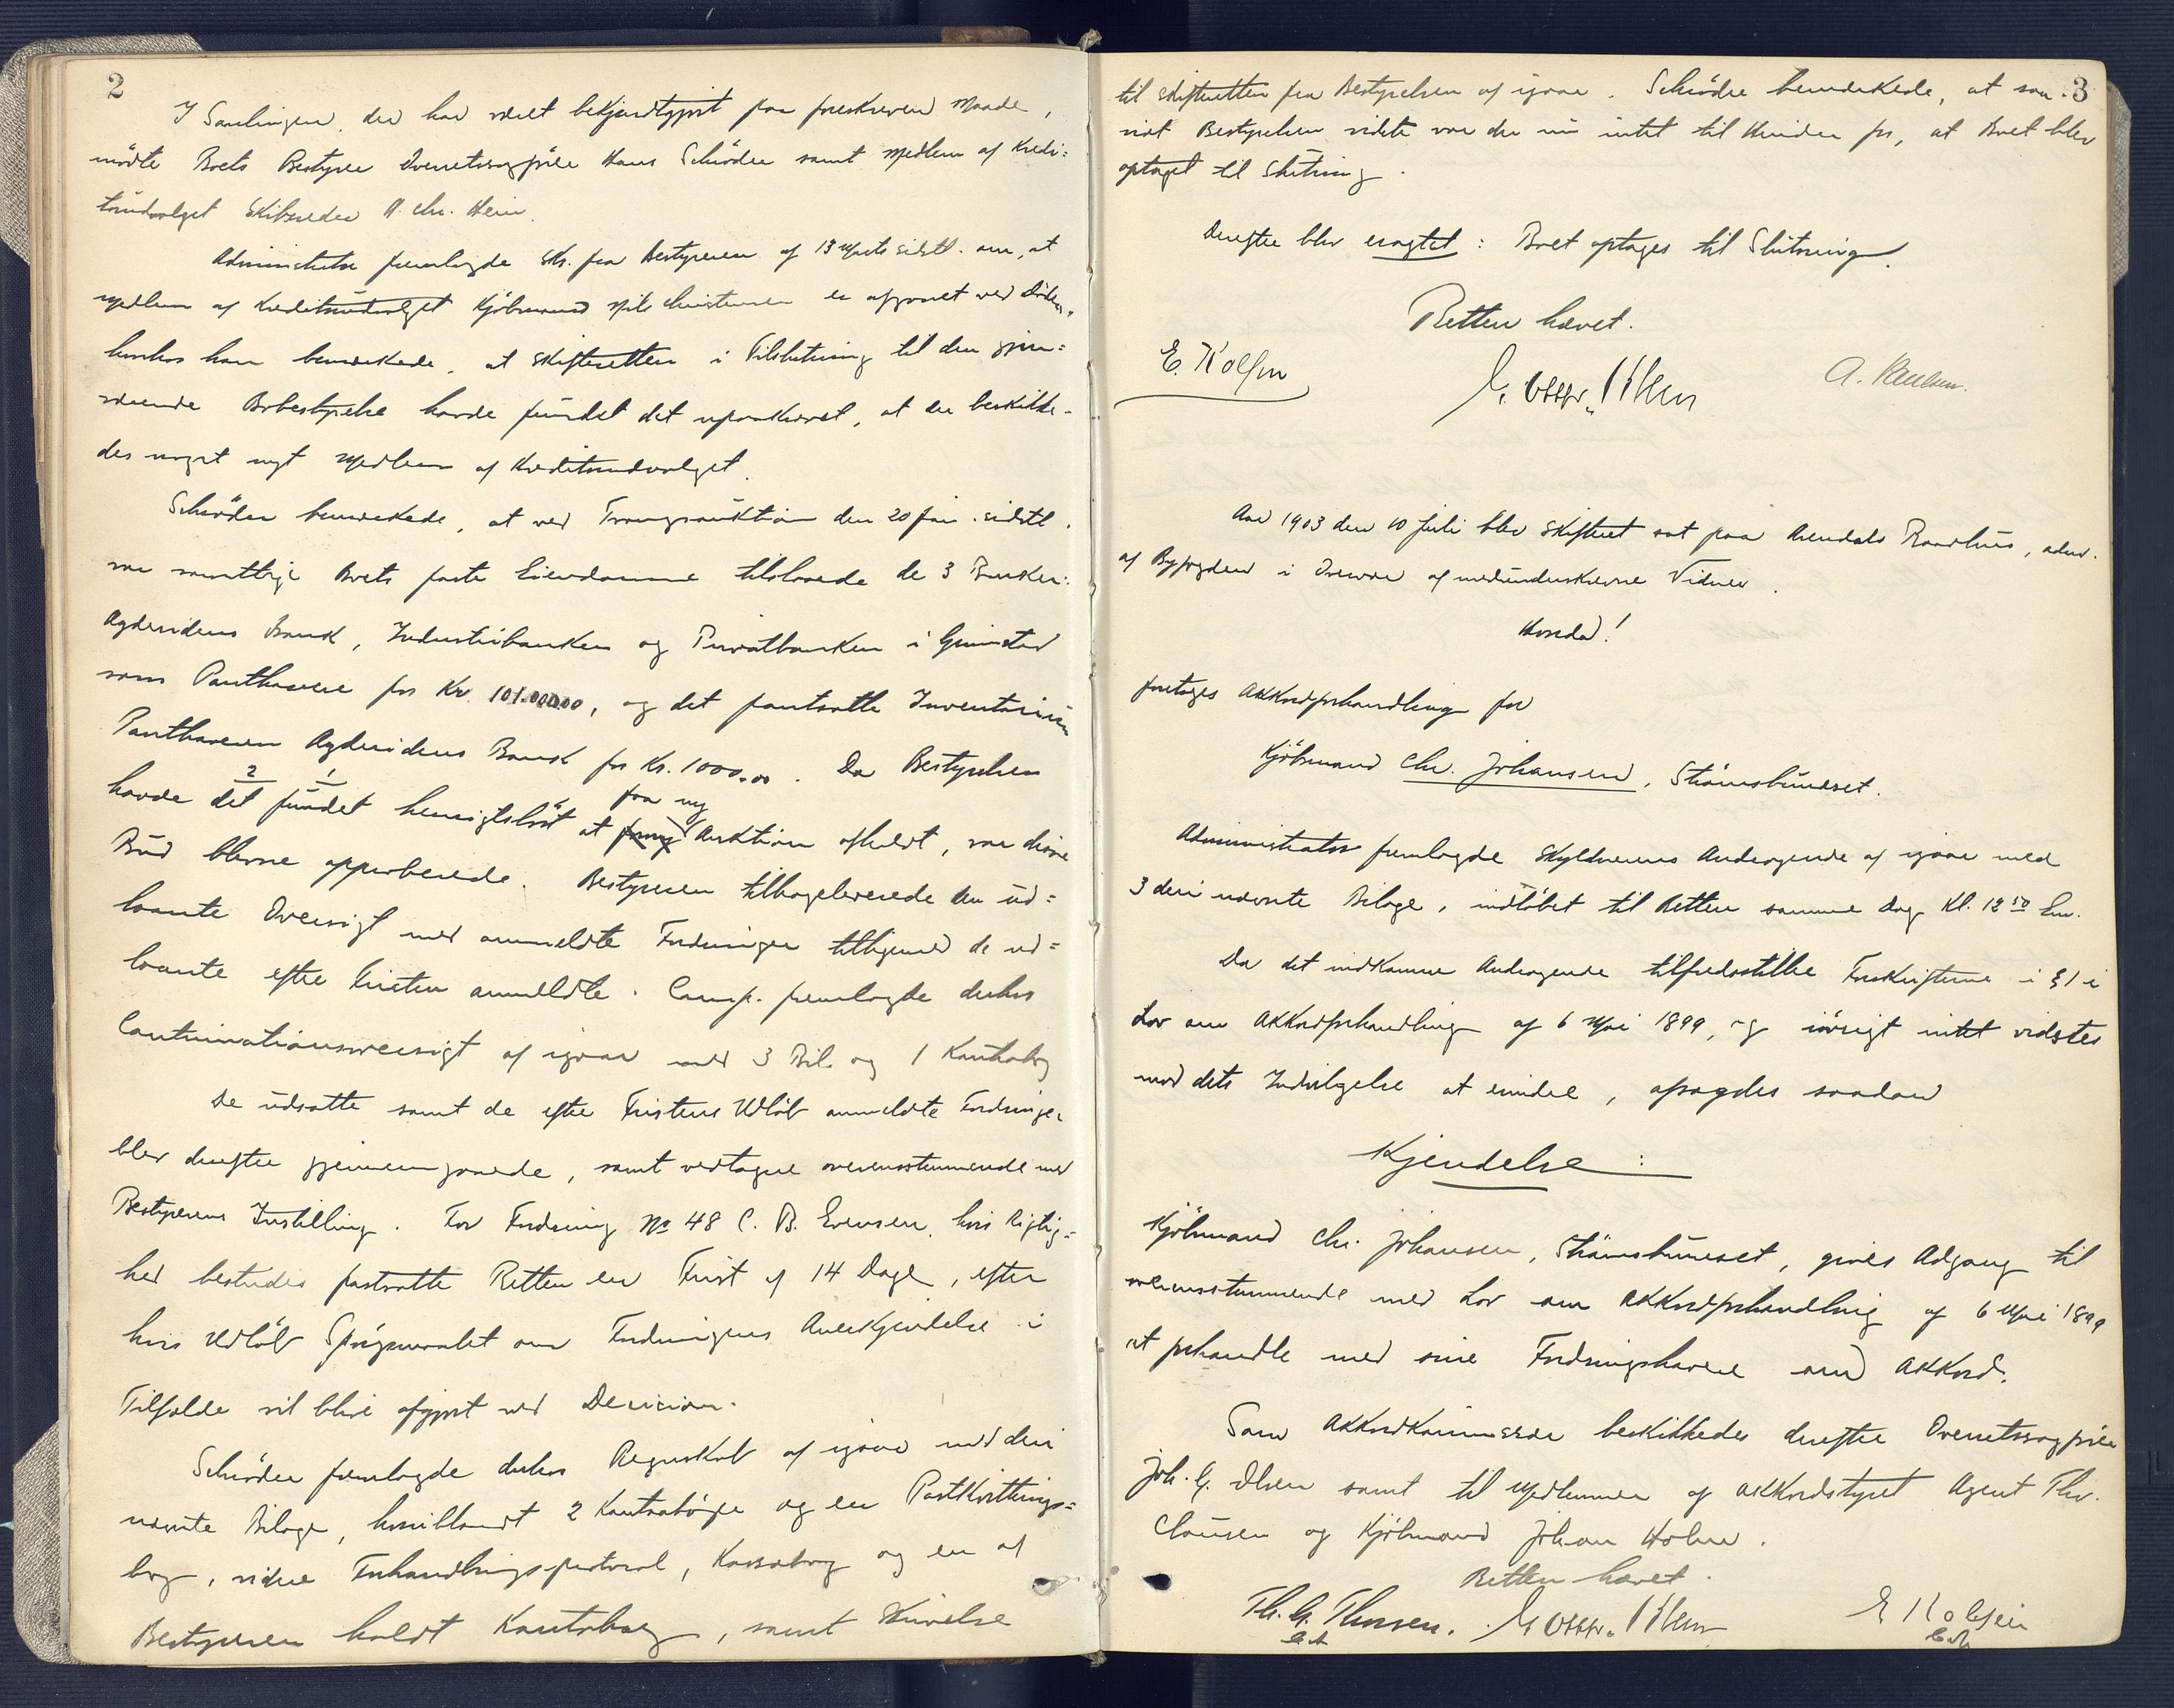 2
I Samlingen, der har været bekjendtgjort paa foreskreven Maade,
mödte Boets Bestyrer Overretssagförer Hans Schröder samt Medlem af Kredi=
torudvalget Skibsreder A. Chr. Hein.
Administrator fremlagde Skr. fra Bestyreren af 13 Marts sidstl. om, at
Medlem af Kreditorudvalget Kjöbmand Nils Christensen er afgaaet ved Döden,
hvorhos han bemærkede, at Skifteretten i Tilslutning til den gjen=
værende Bobestyrelse havde fundet det upaakrævet, at der beskikke-
des noget nyt Medlem af Kreditorudvalget.
Schröder bemærkede, at ved Tvangsauktion den 20 Jan. sidstl.
var samtlige Boets faste Eiendomme tilslaaede de 3 Banker:
Agdesidens Bank, Industribanken og Privatbanken i Grimstad
som Panthavere for Kr. 101.000.00, og det pantsatte Inventarium
Panthaveren Agdesidens Bank for Kr. 1000.00. Da Bestyrelsen
havde det fundet hensigtslöst at faa ny Auktion afholdt, var disse
2 1
Bud blevne approberede. Bestyreren tilbageleverede den ud=
laante Oversigt med anmeldte Fordringer tilligemed de ud=
laante efter Fristen anmeldte. Comp. fremlagde derhos
Continuationsoversigt af igaar med 3 Bil. og 1 Kontrabog
De udsatte samt de efter Fristens Udlöb anmeldte Fordringer
blev derefter gjennemgaaede, samt vedtagne overensstemmende med
Bestyrerens Instilling. For Fordring No 48 C. B. Evensen, hvis Rigtig=
hed bestredes fastsatte Retten en Frist af 14 Dage, efter
hvis Udlöb Spörgsmaalet om Fordringens Anerkjendelse i
Tilfælde vil blive afgjort ved Decision.
Schröder fremlagde derhos Regnskab af igaar med deri
nævnte Bilage, hvoriblandt 2 Kontraböger og en Postkvitterings=
bog, videre Forhandlingsprotocol, Kassabog og en af
Bestyreren holdt Kontobog, samt Skrivelse
3
til Skifteretten fra Bestyrelsen af igaar. Schröder bemærkede, at saa-
vidt Bestyrelsen vidste var der nu intet til Hinder for, at Boet blev
optaget til Slutning.
Derefter blev eragtet: Boet optages til Slutning.
Retten hævet.
E. Rolfsen
A. Paulsen.
Aar 1903 den 10 Juli blev Skifteret sat paa Arendals Raadhus, adm.
af Byfogden i Overvær af medunderskrevne Vidner.
Hvorda!
foretages Akkordforhandling for
Kjöbmand Chr. Johansen, Strömsbunæset.
Administrator fremlagde Skyldnerens Andragende af igaar med
3 deri nævnte Bilage, indlöbet til Retten samme Dag Kl. 12 50 Em.
Da det indkomne Andragende tilfredsstiller Forskrifterne i § 1 i
Lov om Akkordforhandling af 6 Mai 1899, og iövrigt intet vidstes
mod dets Indvilgelse at erindre, afsagdes saadan
Kjendelse:
Kjöbmand Chr. Johansen, Strömsbunæset, gives Adgang til
overensstemmende med Lov om Akkordforhandling af 6 Mai 1899
at forhandle med sine Fordringshavere om Akkord.
Som Akkordkommissær beskikkedes derefter Overretssagförer
Joh. G. Olsen samt til Medlemmer af Akkordstyret Agent Thv.
Clausen og Kjöbmand Johan Holm.
Retten hævet.
Th. G. Thorsen.
E Rolfsen